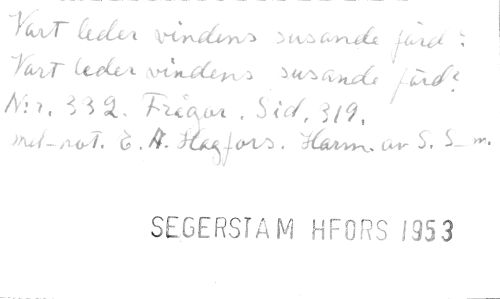 Vart leder vindens susande färd?
Vart leder vindens susande färd?
N:r. 332. Frågor. Sid. 319.
mel-not. E. A. Hagfors. Harm. av S. S-m.
SEGERSTAM HFORS 1953